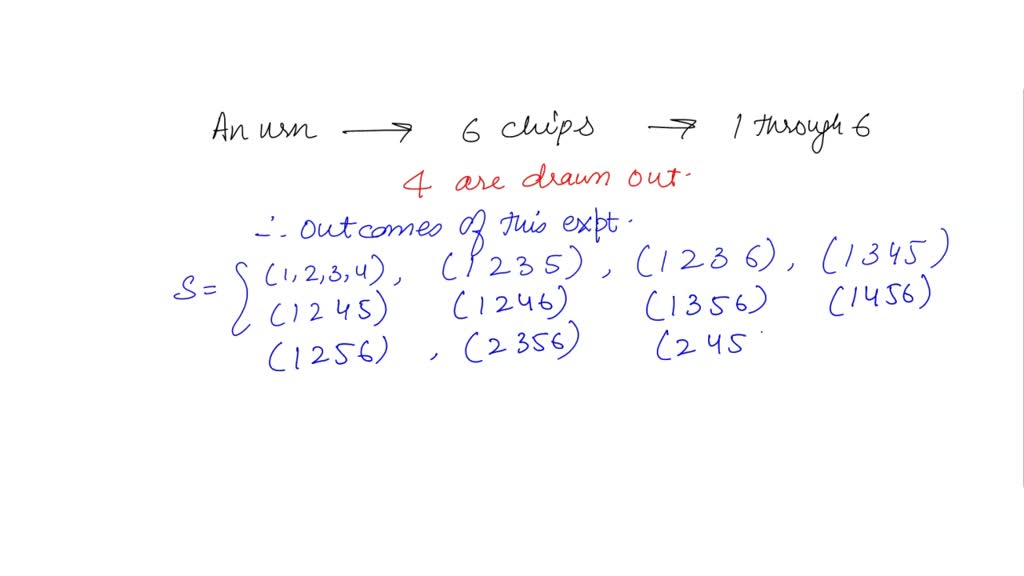 An urn → 6 chips → 1 through 6
4 are drawn out.
∴ outcomes of this expt.
S = { (1,2,3,4), (1 2 3 5), (1 2 3 6), (1 3 4 5)
(1 2 4 5) (1 2 4 6) (1 3 5 6) (1 4 5 6)
(1 2 5 6) , (2 3 5 6) (2 4 5